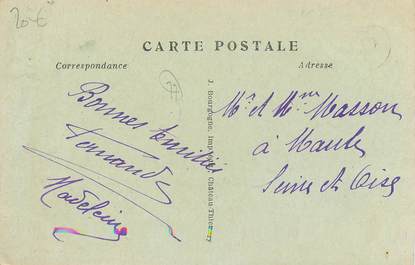 20€
CARTE POSTALE
Correspondance
Adresse
Bonnes Amitiés
Fernande
Madeleine
J. Bourgogne, Imp. Château-Thierry
Mr et Mme Masson
à Maule
Seine et Oise